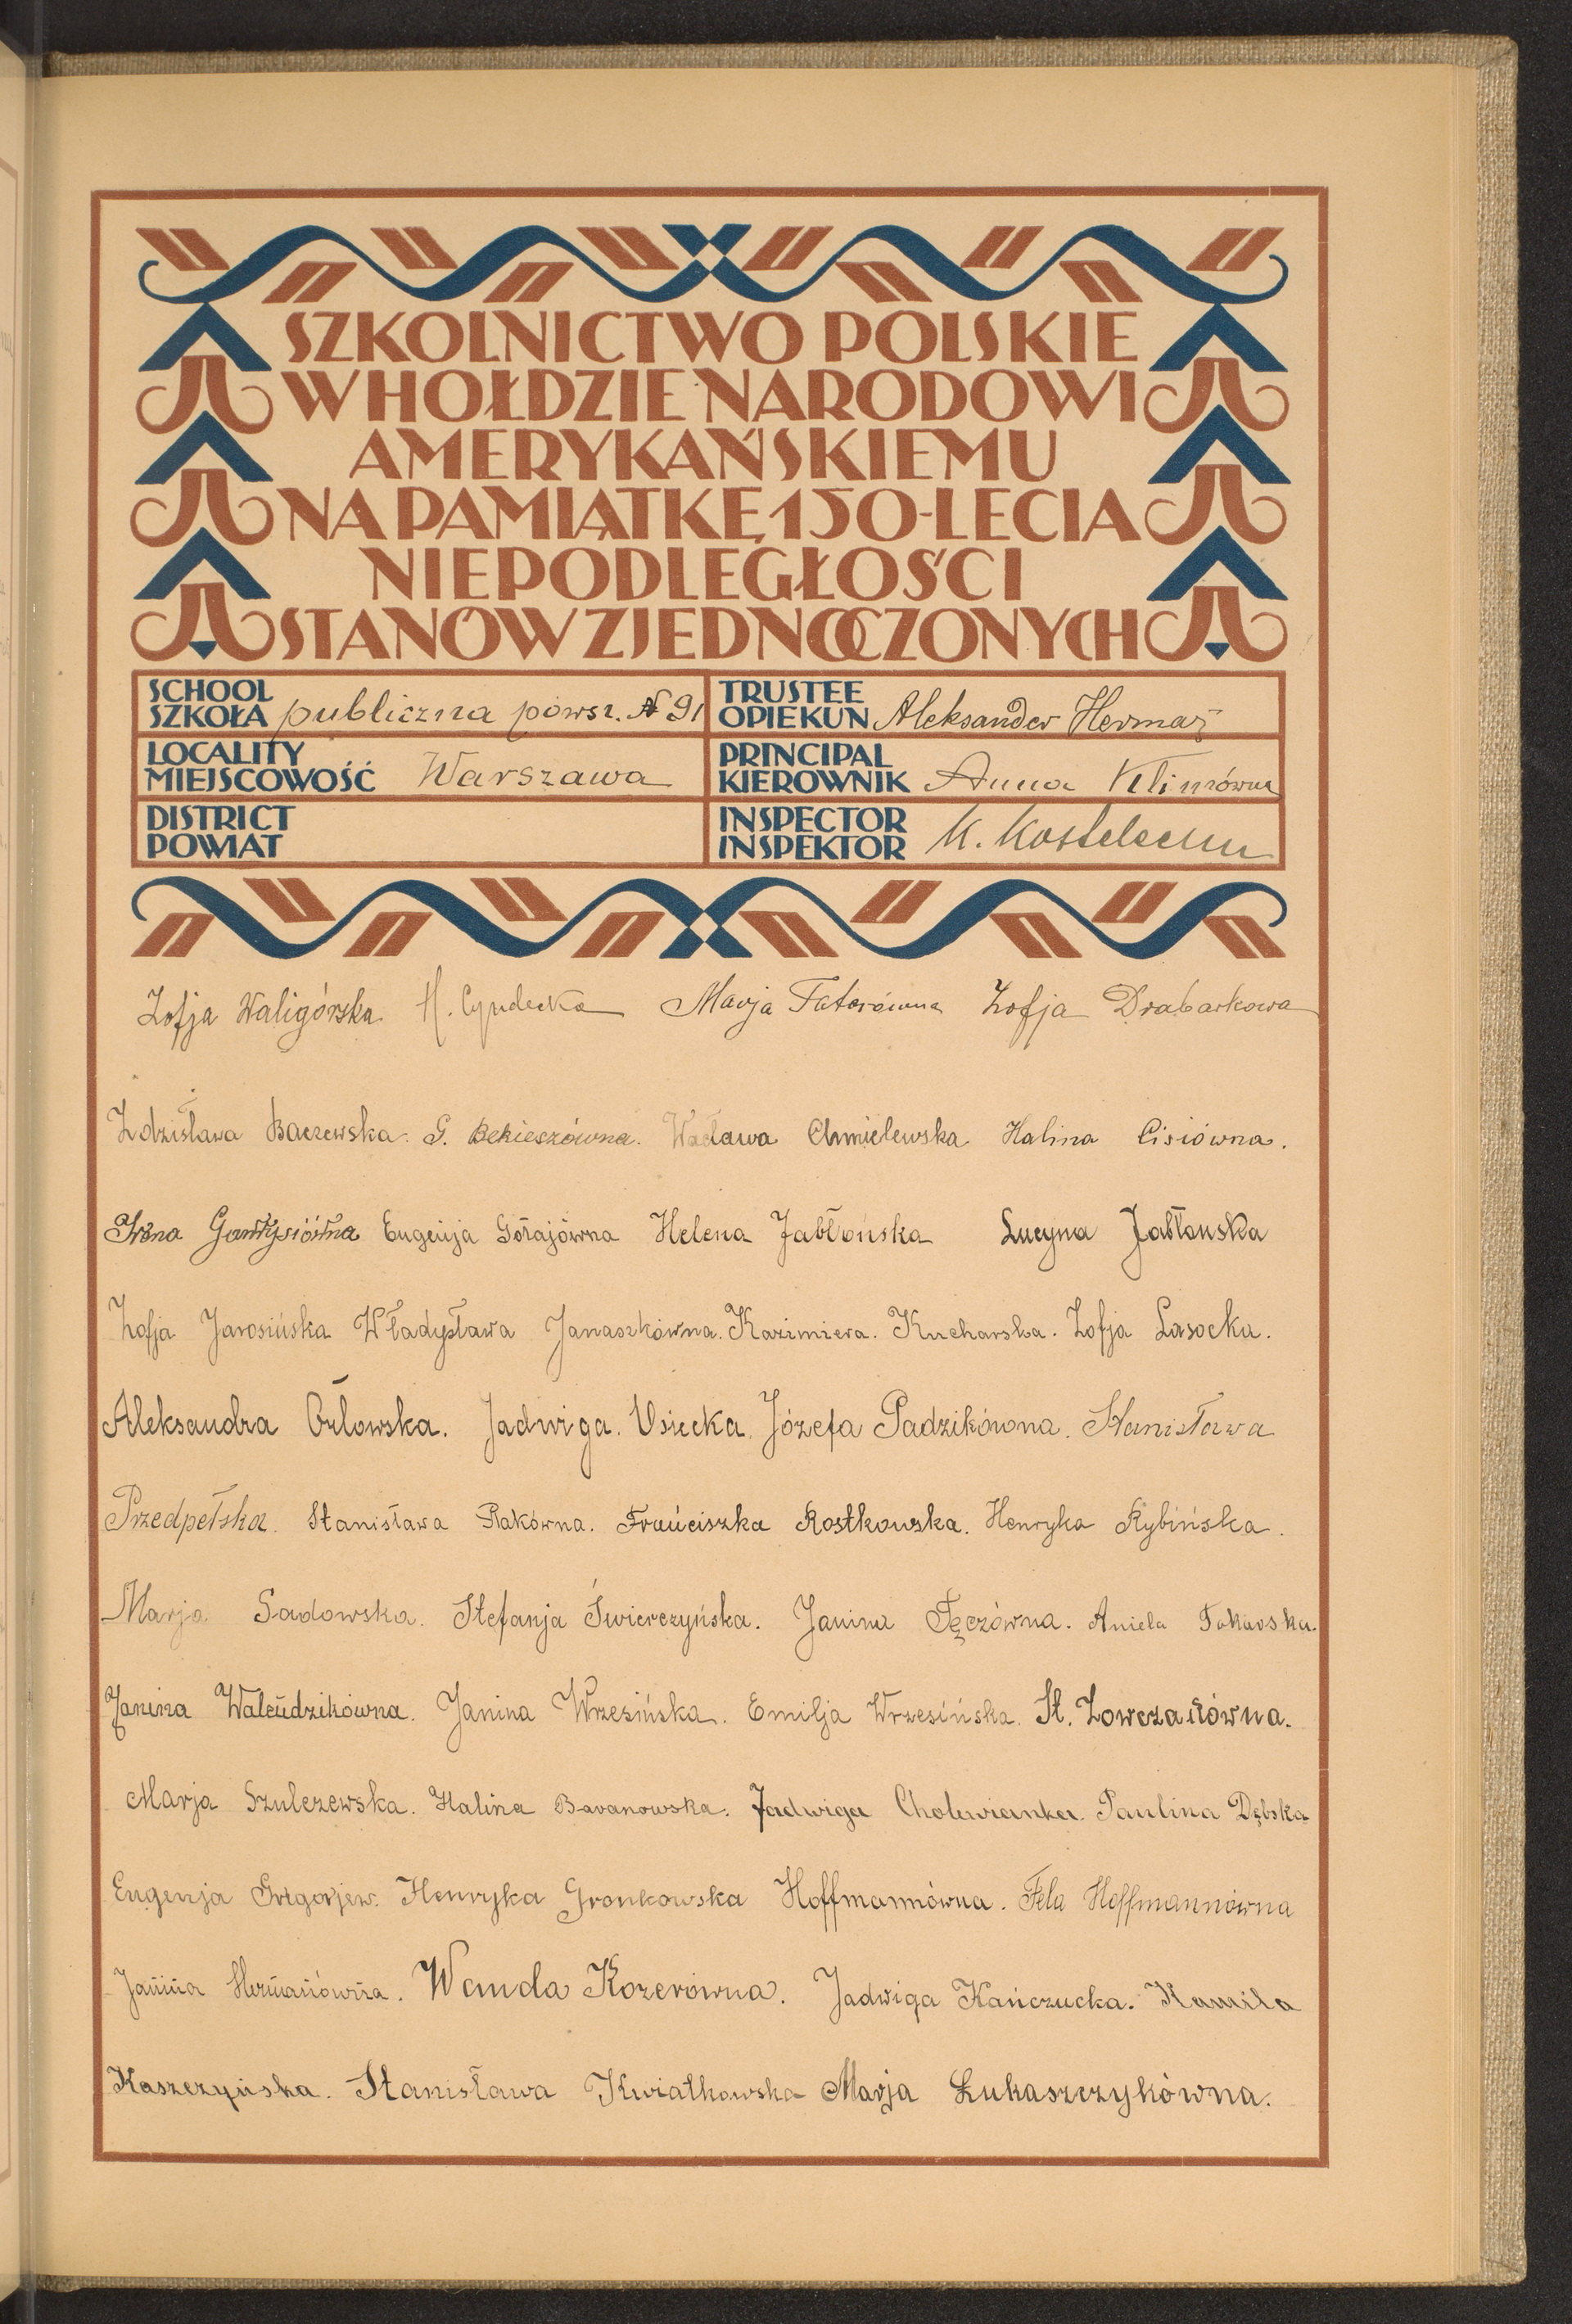 SZKOLNICTWO POLSKIE
W HOŁDZIE NARODOWI
AMERYKAŃSKIEMU
NA PAMIĄTKĘ 150-LECIA
NIEPODLEGŁOŚCI
STANÓW ZJEDNOCZONYCH
SCHOOL
SZKOŁA publiczna powsz. № 91
TRUSTEE
OPIEKUN Aleksander Herman
LOCALITY
MIEJSCOWOŚĆ Warszawa
PRINCIPAL
KIEROWNIK Anna Klimówna
DISTRICT
POWIAT
INSPECTOR
INSPEKTOR K.
Zofja Waligórska H. Cyndecka Marja Zofja Drabarkowa
Zdzisława Baczewska. G. Bekieszówna. Wacława Chmielewska Halina Cisiówna.
Eugenja Górajówna Helena Jabłońska Lucyna Jabłonska
Zofja Jarosińska Władysława Janaszkówna. Kazimiera. Kucharska. Zofja Lasocka.
Aleksandra Orłowska. Jadwiga. Osiecka. Józefa Padzikówna. Stanisława
Przedpełska. Stanisława Rakówna. Franciszka Rostkowska. Henryka Rybińska.
Marja Sadowska. Stefanja Świerczyńska. Janina Tęczówna. Aniela Tokarska.
Janina Walendzikówna. Janina Wrzesińska. Emilja Wrzesińska. St.
Marja Szulczewska. Halina Baranowska. Jadwiga Cholewianka. Paulina Dębska
Eugenja Grigorjew. Henryka Gronkowska Hoffmannówna. Fela Hoffmannówna
Janina Hermanówna. Wanda Kozerówna. Jadwiga Kańczucka. Kamila
Kaszczyńska. Stanisława Kwiatkowska Marja Łukaszczykówna.